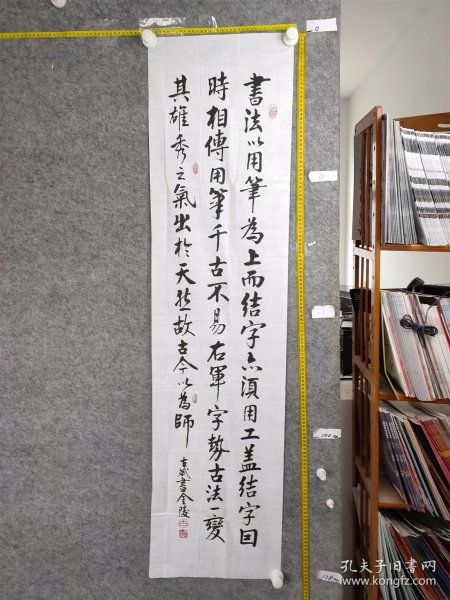 書法以用筆為上而結字亦須用工盖結字因
時相傳用筆千古不易右軍字勢古法一變
其雄秀之氣出於天然故古今以為師
書金陵
孔夫子旧书网
www.kongfz.com